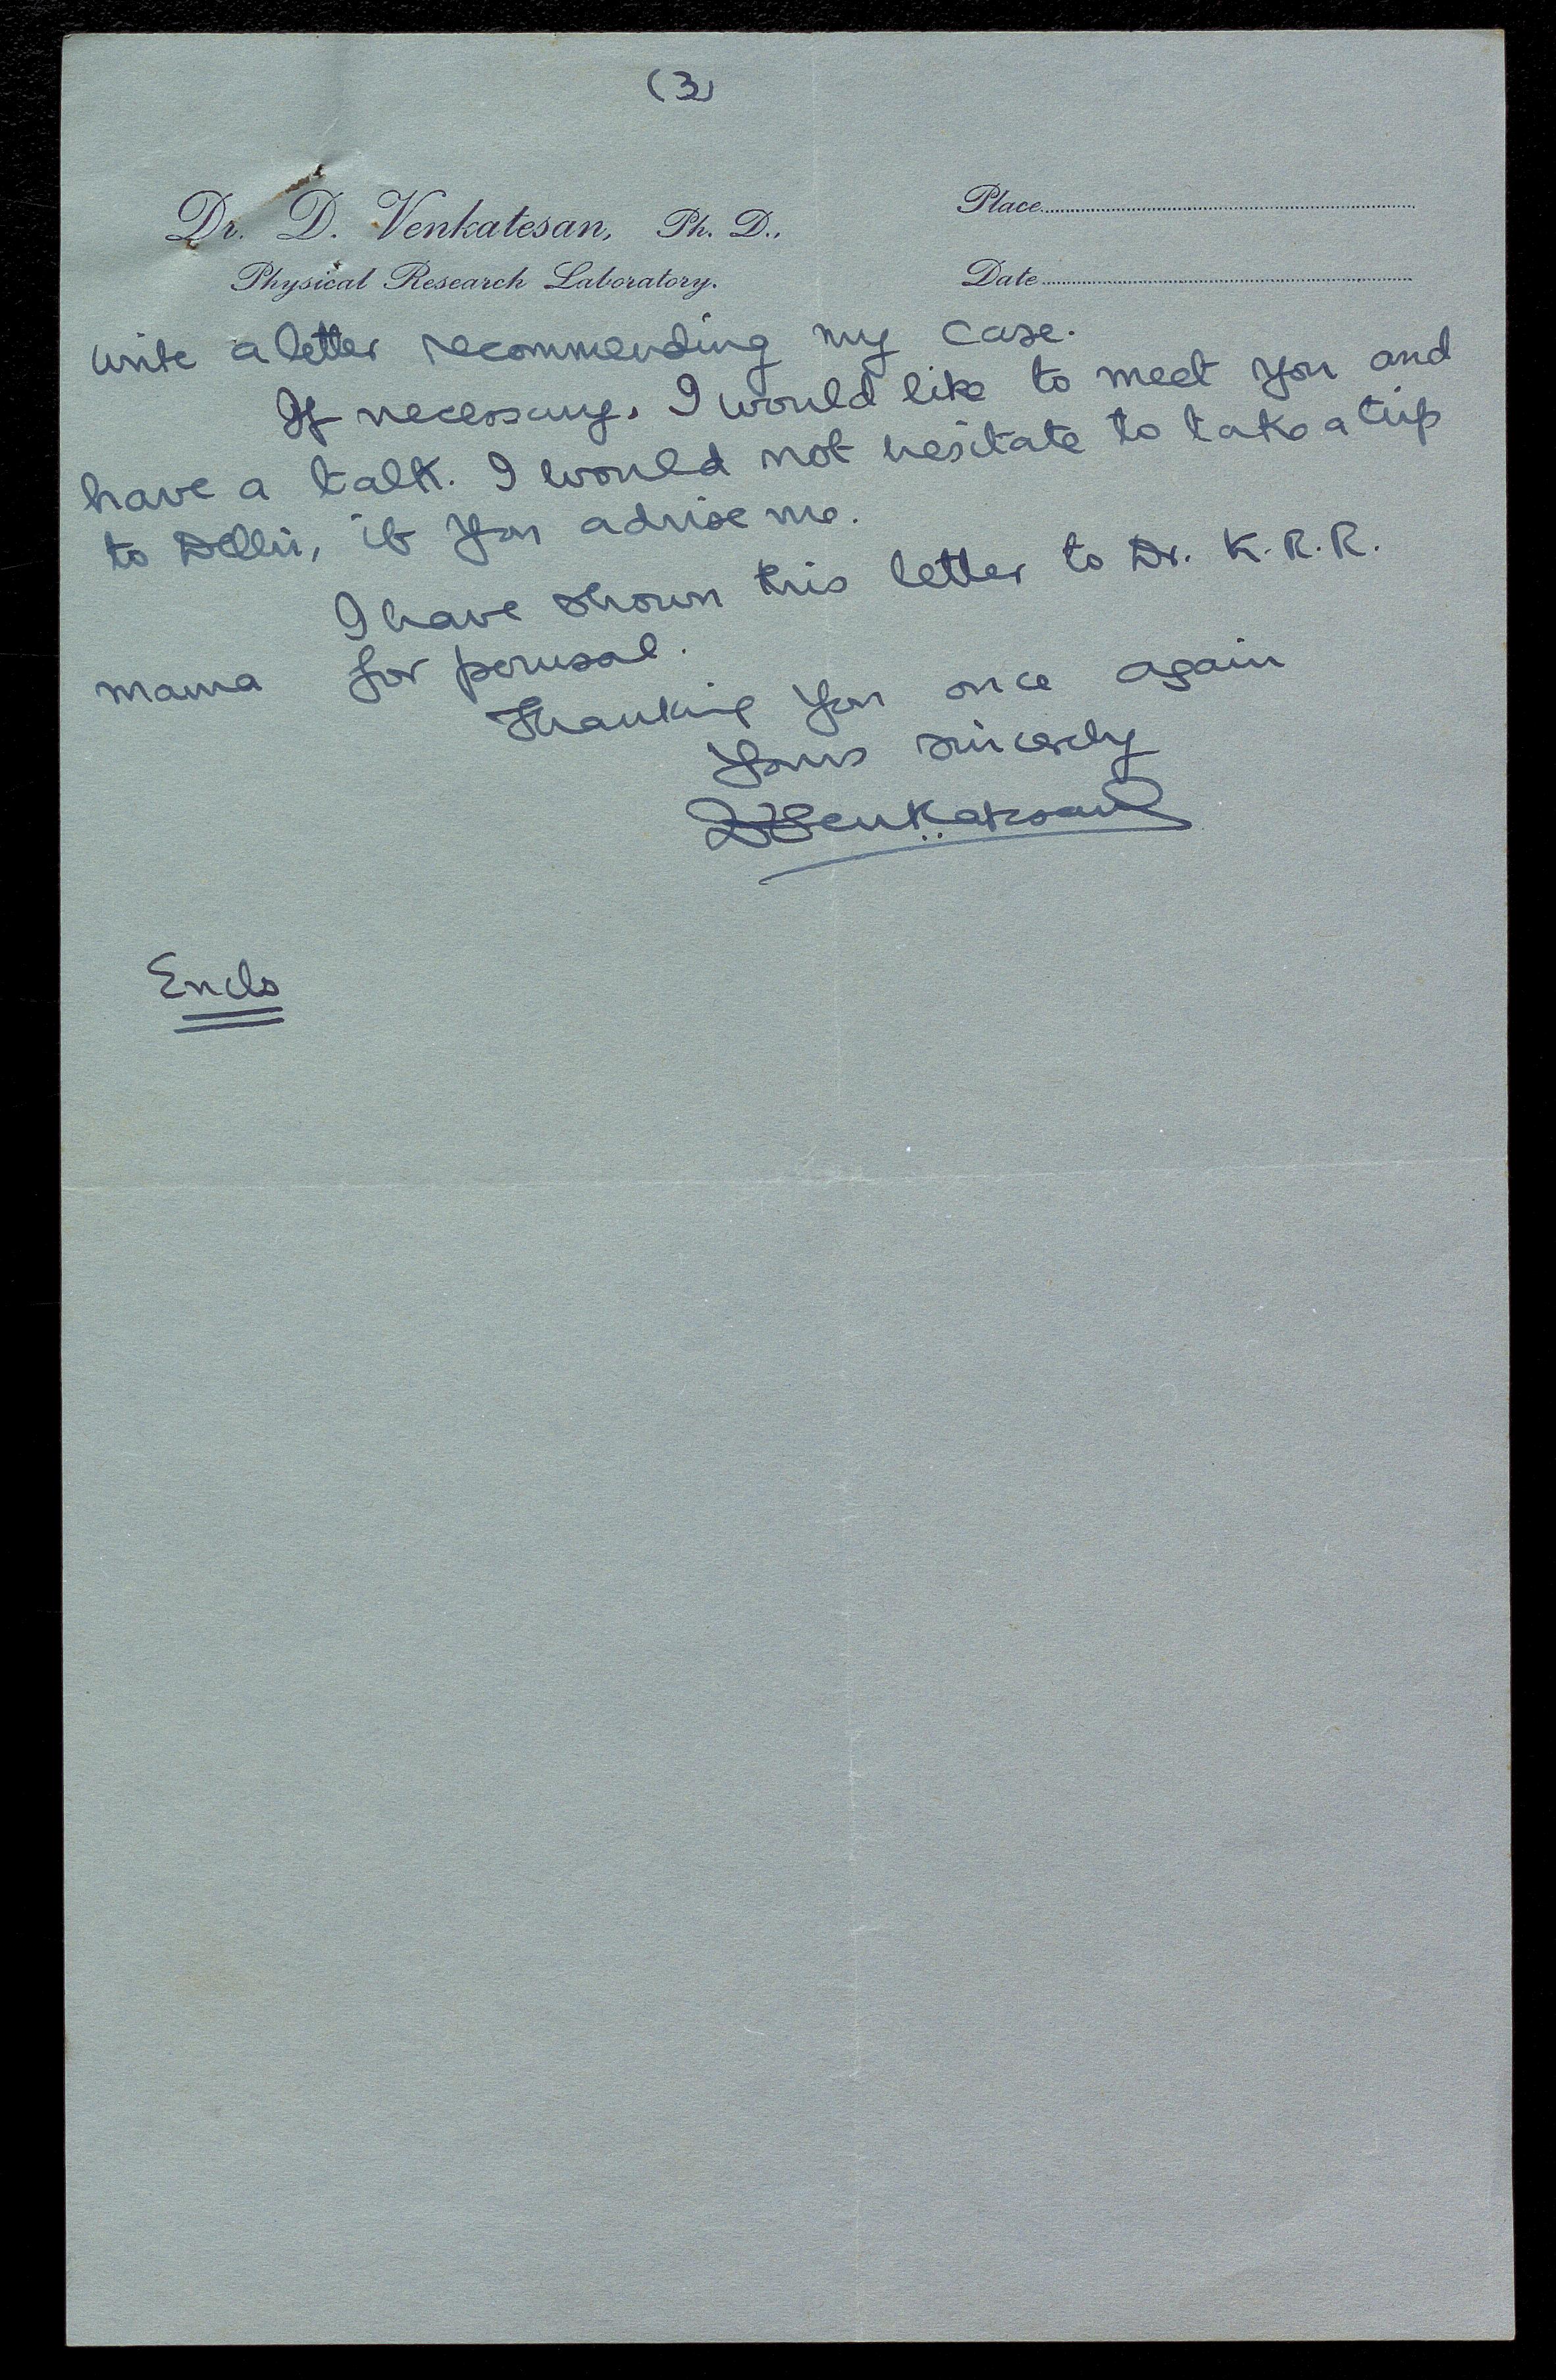 (3)
Dr. D. Venkatesan, Ph. D.,
Physical Research Laboratory.
Place
Date
write a letter recommending my case.
If necessary, I would like to meet you and
have a talk. I would not hesitate to take a trip
to Delhi, if you advise me.
I have shown this letter to Dr. K.R.R.
mama for perusal.
Thanking you once again
Yours sincerely
DVenkatesan
Encls